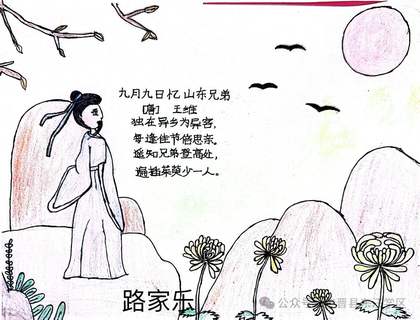 九月九日忆山东兄弟
[唐] 王维
独在异乡为异客,
每逢佳节倍思亲。
遥知兄弟登高处,
遍插茱萸少一人。
路家乐
公众号